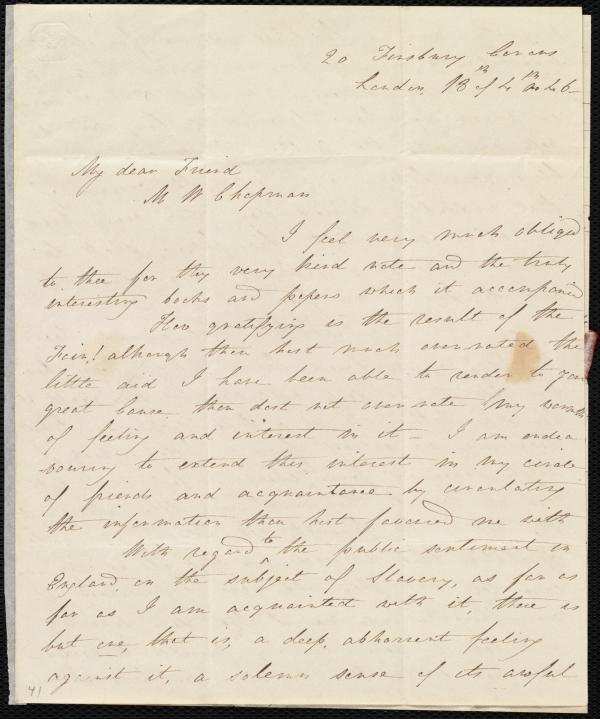 20 Finsbury Circus
London, 18th of 4th mo 46—
My dear Friend
M W Chapman
I feel very much obliged
to thee for thy very kind note and the truly
interesting books and papers which it accompanied
How gratifying is the result of the
Fair! although thou hast much over-rated the
little aid I have been able to render to your
great Cause thou dost not over-rate my warmth
of feeling and interest in it — I am endea
vouring to extend this interest in my circle
of friends and acquaintance by circulating
the information thou hast favoured me with
With regard to the public sentiment in
England, on the subject of Slavery, as far as
far as I am acquainted with it, there is
but one, that is, a deep, abhorrent feeling
against it, a solemn sense of its awful
41